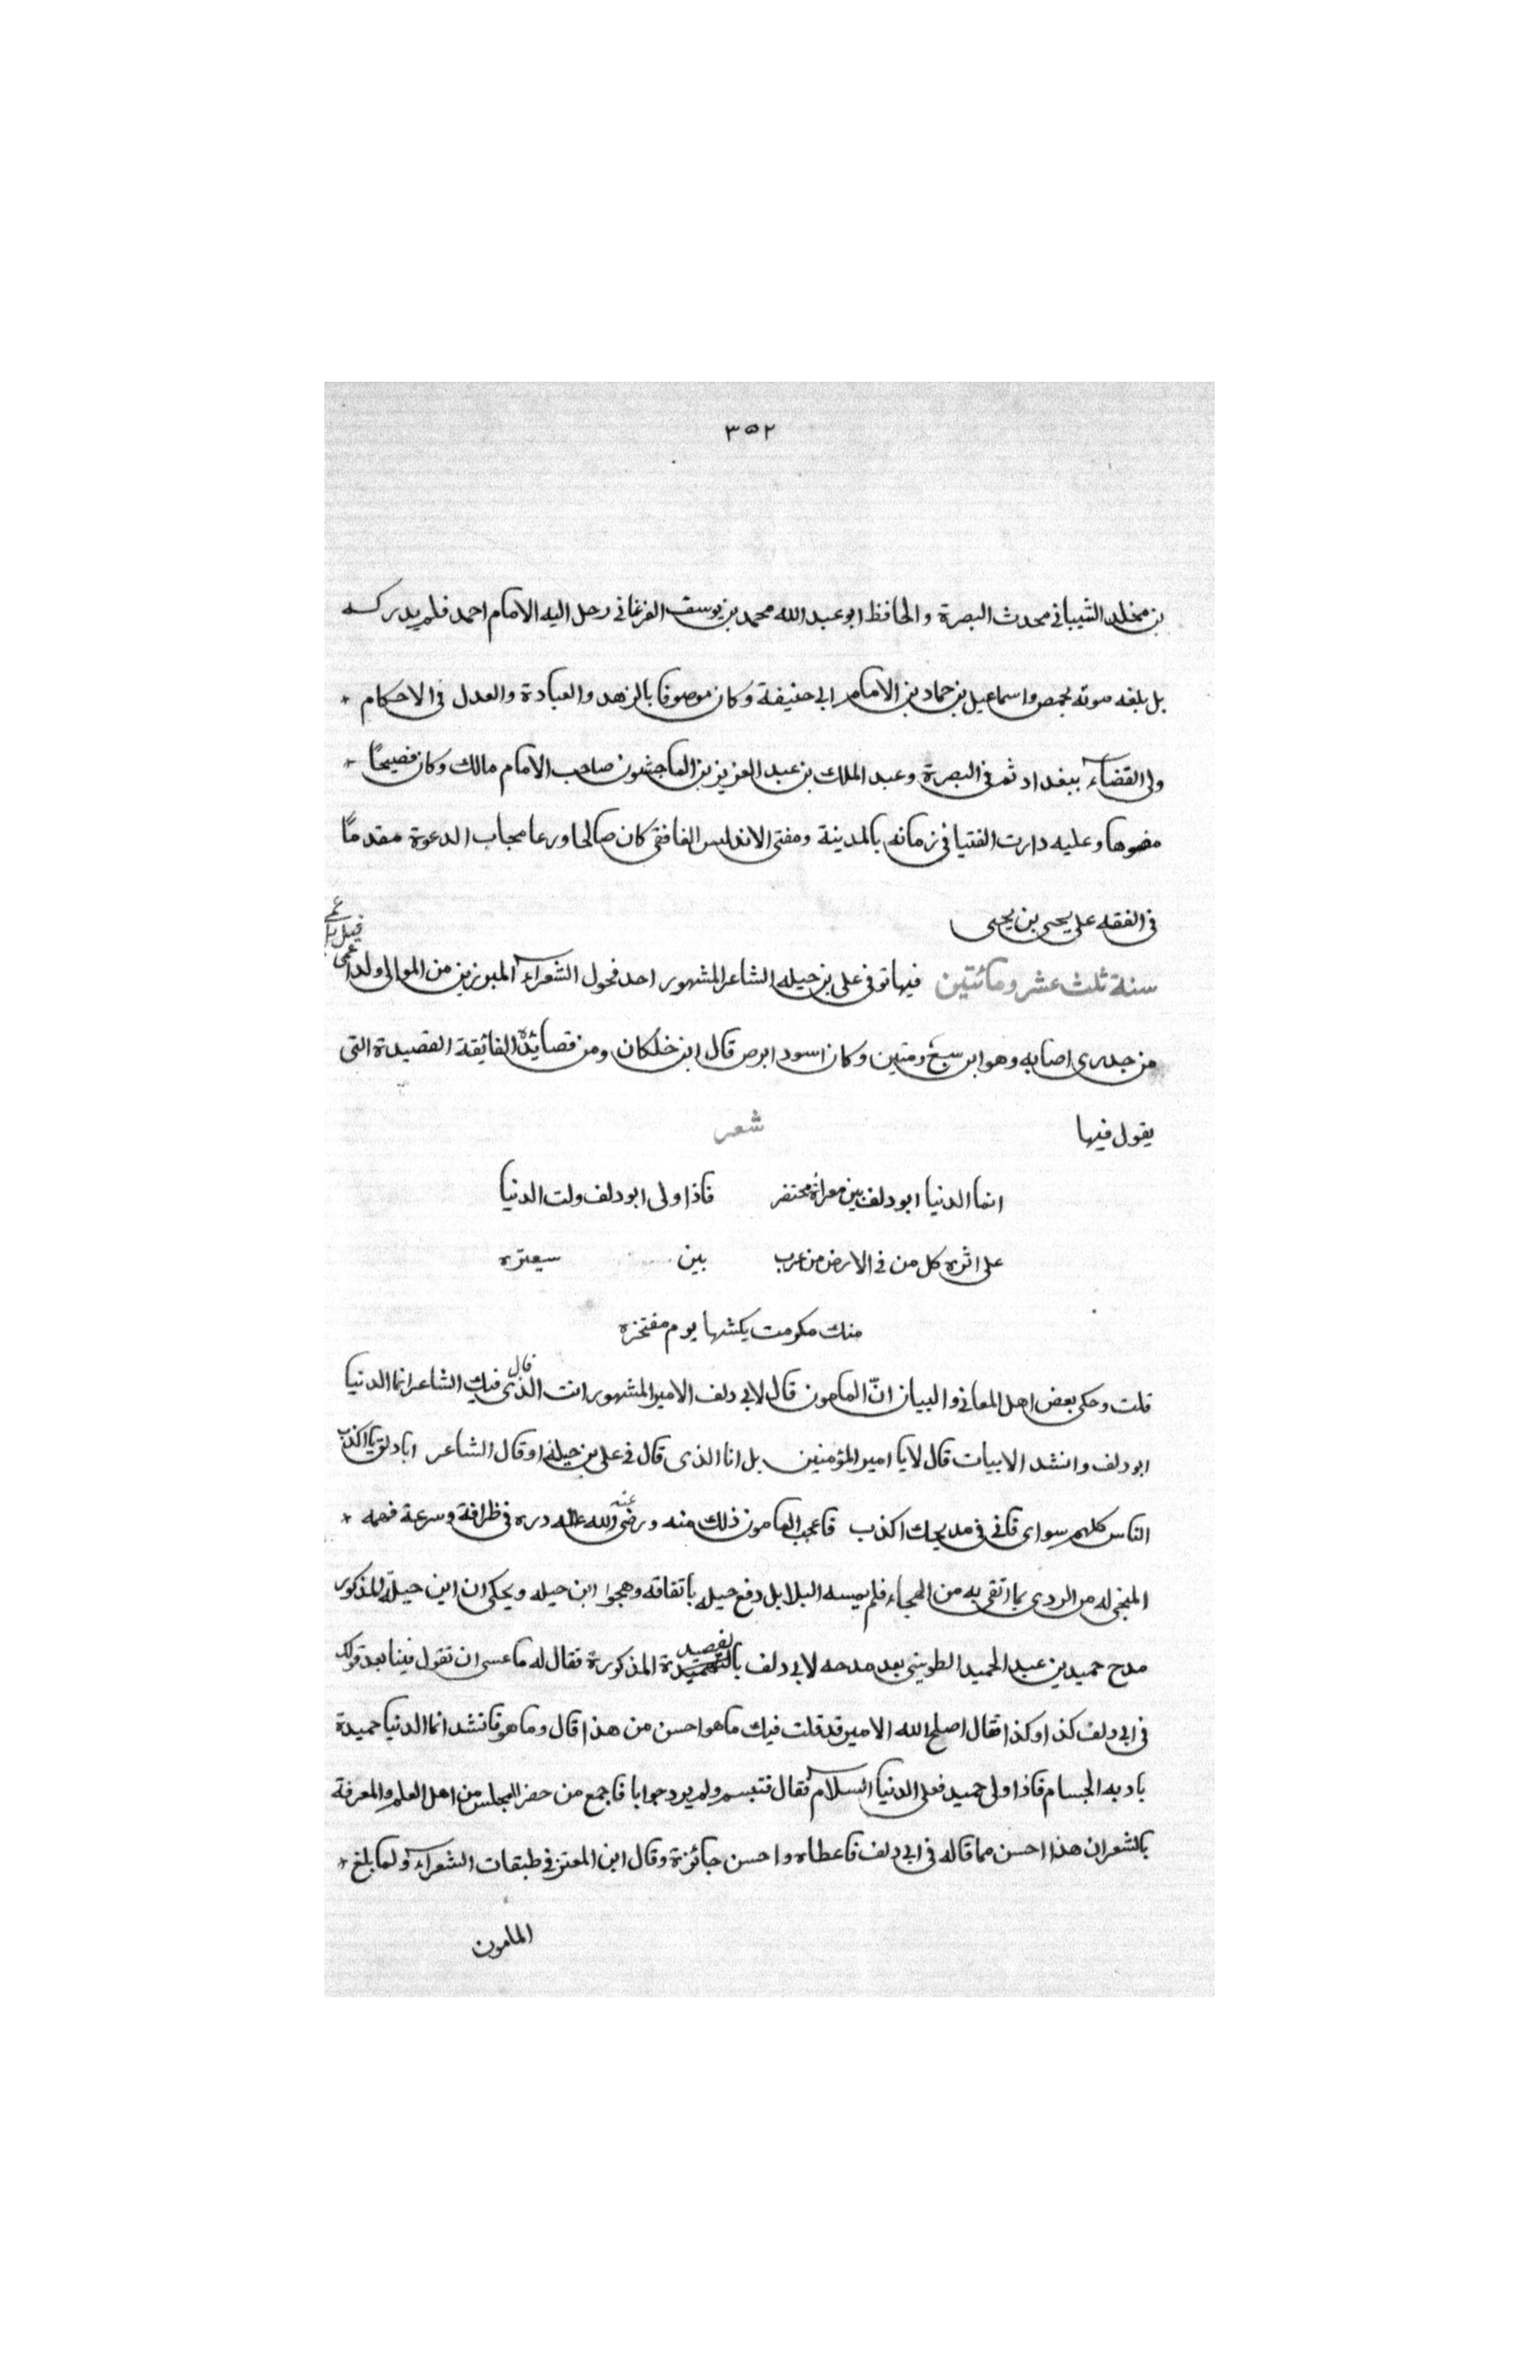 ٣٥٢
بن مخلد الشيباني محدث البصرة والحافظ ابو عبد الله محمد بن يوسف الفرغاني رحل اليه الامام احمد فلم يدركه
بل بلغه موته بحمص واسماعيل بن حماد بن الامام ابي حنيفة وكان موصوفا بالزهد والعبادة والعدل في الاحكام
ولى القضاء ببغداد ثم في البصرة وعبد الملك بن عبد العزيز بن الماجشون صاحب الامام مالك وكان فصيحًا
مفوها وعليه دارت الفتيا في زمانه بالمدينة ومفتى الاندلس الغافقي كان صالحا ورعا مجاب الدعوة مقدمًا
في الفقه على يحيى بن يحيى
سنة ثلث عشر ومائتين فيها توفي علي بن حيله الشاعر المشهور احد فحول الشعراء المبرزين من الموالى ولد اعمى
وقيل بل عمى
من جدرى اصابه وهو ابن سبع ومتين وكان اسود ابرص قال ابن خلكان ومن قصائده الفائقة القصيدة التى
يقول فيها شعر
انما الدنيا ابو دلف بين معراه محتضر فاذا ولى ابو دلف ولت الدنيا
على اثره كل من في الارض من عرب بين سيعتره
منك مكرمت يكتسها يوم مفتخره
قلت وحكى بعض اهل المعاني والبيان انّ المامون قال لابي دلف الامير المشهور انت الذى قال فيك الشاعر انما الدنيا
ابو دلف وانشد الابيات قال لا يا امير المؤمنين بل انا الذى قال في علي بن حيله او قال الشاعر ابا دلق يا اكذب
الناس كلهم سواى فاني في مديحك اكذب فاعجب المامون ذلك منه ورضى عنه الله دره في ظرافة وسرعة فهمه
المنجى له من الردى بما اتقى به من الهجاء فلم يمسه البلا بل دفع حيله باتفاقه وهجوا ابن حيله ويحكى ان ابن حيلة المذكور
مدح حميد بن عبد الحميد الطويني بعد مدحه لابي دلف بالقصيدة المذكورة فقال له ما عسى ان تقول فينا بعد قولك
في ابي دلف كذا وكذا فقال اصلح الله الامير قد قلت فيك ما هو احسن من هذا قال وما هو فانشد انما الدنيا حميدة
باد به الجسام فاذا ولى حميد فعلى الدنيا السلام فقال فتبسم ولم يرد جوابا فاجمع من حضر المجلس من اهل العلم والمعرفة
بالشعر ان هذا احسن مما قاله في ابي دلف فاعطاه واحسن جائزة وقال ابن المعتز في طبقات الشعراء ولما بلغ
المامون